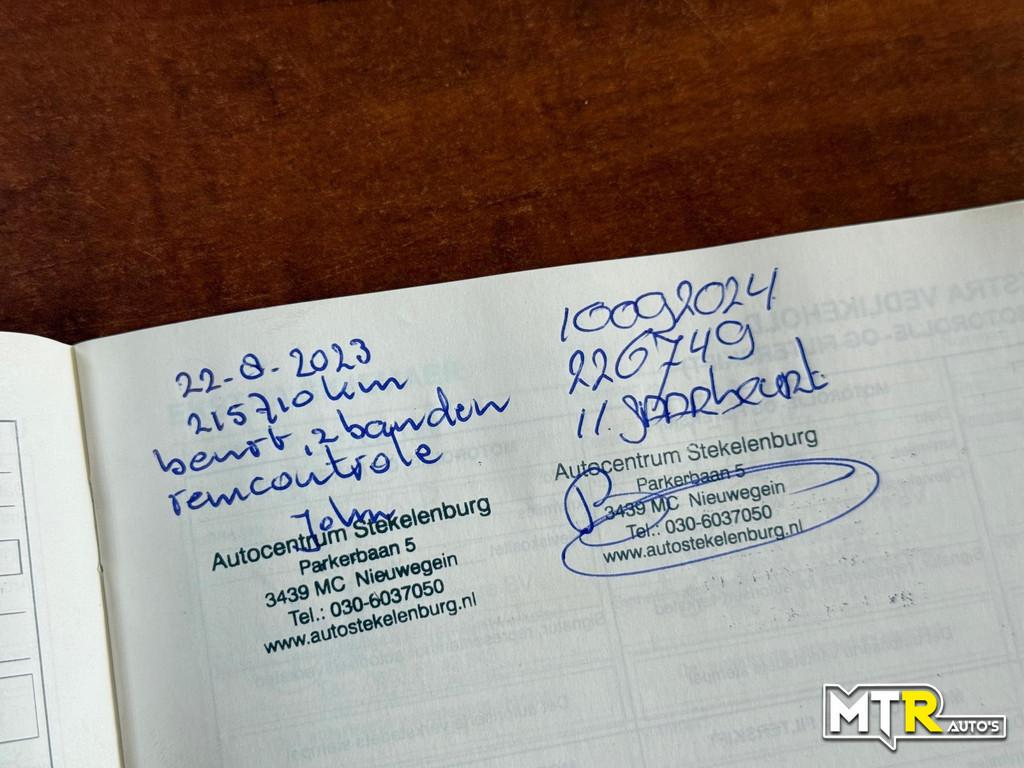 22-8-2023
215710 km
beurt, 2 banden
remcontrole
John
Autocentrum Stekelenburg
Parkerbaan 5
3439 MC Nieuwegein
Tel.: 030-6037050
www.autostekelenburg.nl
10092024
226749
11. Jaarbeurt.
Autocentrum Stekelenburg
Parkerbaan 5
3439 MC Nieuwegein
Tel.: 030-6037050
www.autostekelenburg.nl
MTR AUTO'S